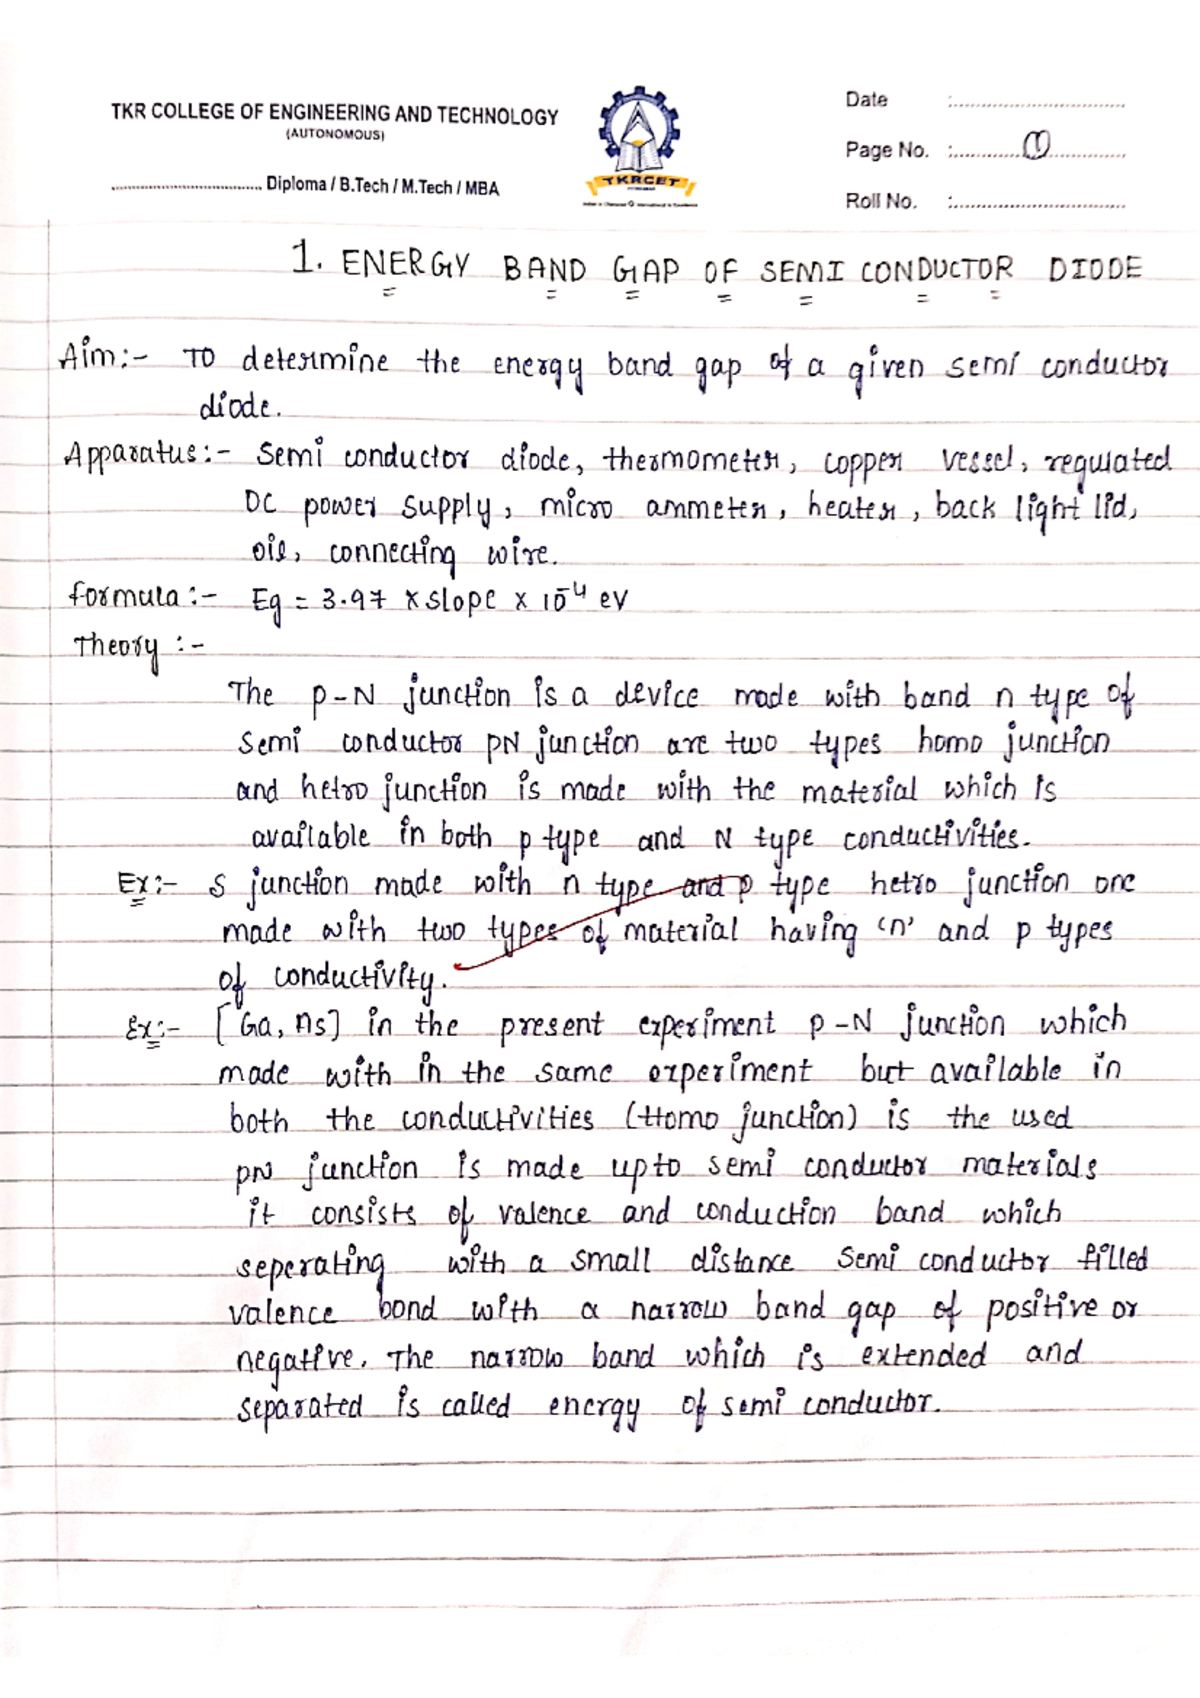 TKR COLLEGE OF ENGINEERING AND TECHNOLOGY
(AUTONOMOUS)
Diploma / B.Tech / M.Tech / MBA
TKRCET
Date :
Page No. : 1
Roll No. :
1. ENERGY BAND GAP OF SEMI CONDUCTOR DIODE
Aim:- To determine the energy band gap of a given semi conductor
diode.
Apparatus:- Semi conductor diode, thermometer, copper vessel, regulated
DC power supply, micro ammeter, heater, back light lid,
oil, connecting wire.
formula:- Eg = 3.97 x slope x 10⁻⁴ ev
Theory :-
The p-N junction is a device made with band n type of
semi conductor pN junction are two types homo junction
and hetro junction is made with the material which is
available in both p type and N type conductivities.
Ex:- S junction made with n type and p type hetro junction one
made with two types of material having 'n' and p types
of conductivity.
Ex:- [Ga, As] in the present experiment p-N junction which
made with in the same experiment but available in
both the conductivities (Homo junction) is the used
pN junction is made upto semi conductor materials
it consists of valence and conduction band which
seperating with a small distance semi conductor filled
valence bond with a narrow band gap of positive or
negative. The narrow band which is extended and
separated is called energy of semi conductor.